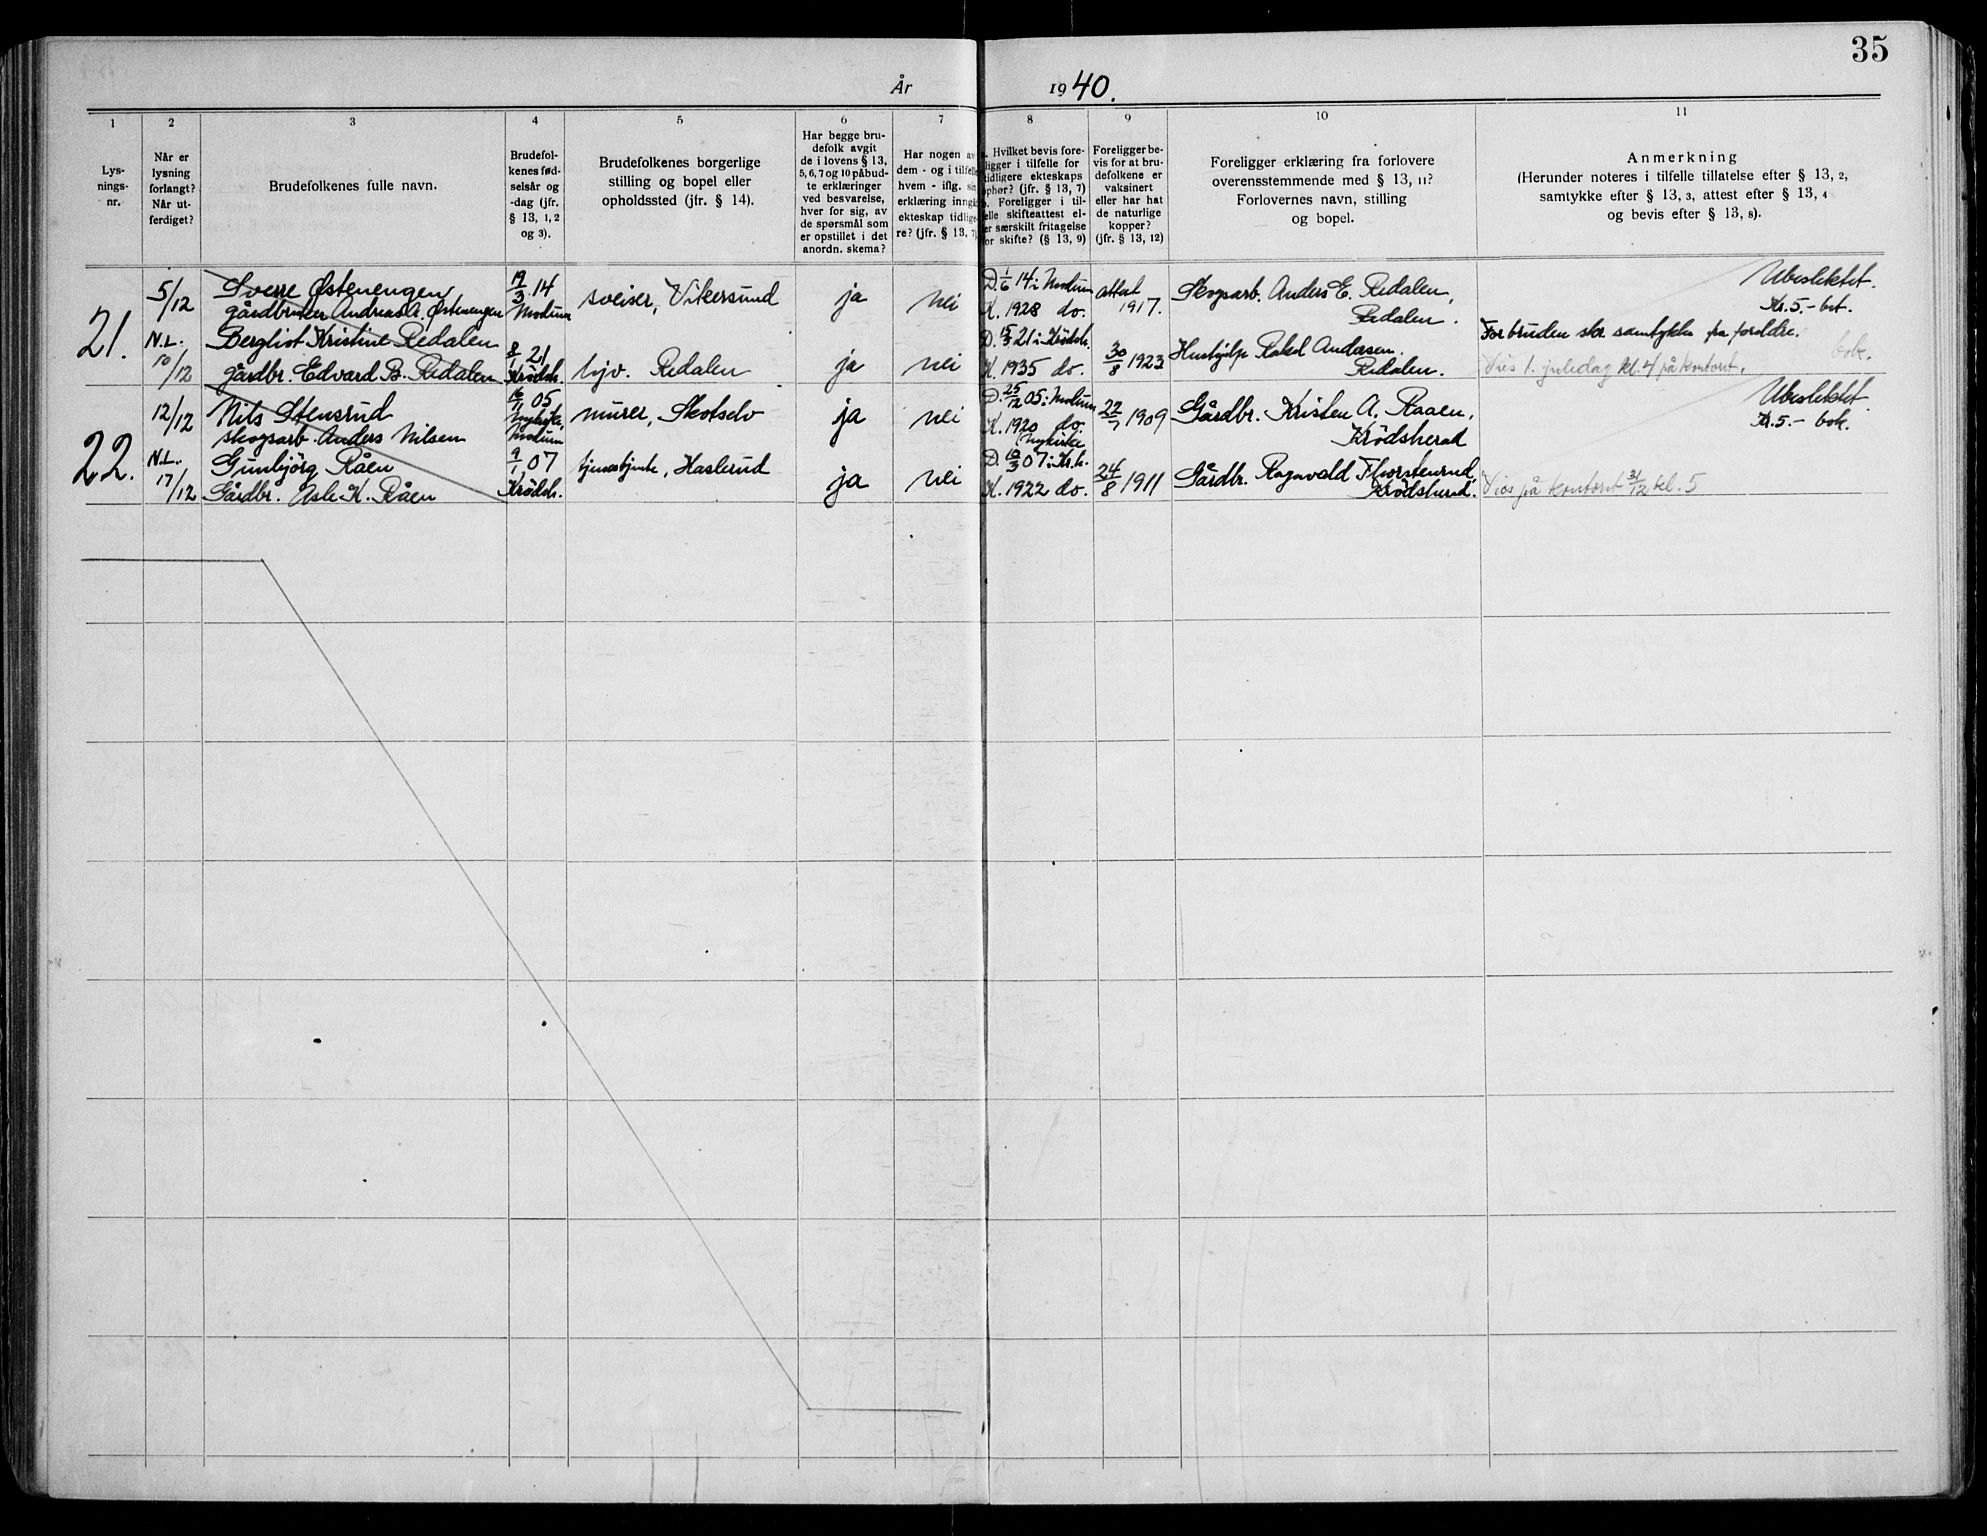 35
År 1940.
1
2
3
4
5
6
7
8
9
10
11
Lys-
nings-
nr.
Når er
lysning
forlangt?
Når ut-
ferdiget?
Brudefolkenes fulle navn.
Brudefol-
kenes fød-
selsår og
-dag (jfr.
§ 13, 1, 2
og 3).
Brudefolkenes borgerlige
stilling og bopel eller
opholdssted (jfr. § 14).
Har begge bru-
defolk avgit
de i lovens § 13,
5, 6, 7 og 10 påbud-
te erklæringer
ved besvarelse,
hver for sig, av
de spørsmål som
er opstillet i det
anordn. skema?
Har nogen av
dem - og i tilfelle
hvem - iflg. sin
erklæring inngåt
ekteskap tidlige-
re? (jfr. § 13, 7)
Hvilket bevis fore-
ligger i tilfelle for
tidligere ekteskaps
ophør? (jfr. § 13, 7)
Foreligger i til-
felle skifteattest el-
er særskilt fritagelse
for skifte? (§ 13, 9)
Foreligger be-
vis for at bru-
defolkene er
vaksinert
eller har hat
de naturlige
kopper?
(jfr. § 13, 12)
Foreligger erklæring fra forlovere
overensstemmende med § 13, 11?
Forlovernes navn, stilling
og bopel.
Anmerkning
(Herunder noteres i tilfelle tillatelse efter § 13, 2,
samtykke efter § 13, 3, attest efter § 13, 4
og bevis efter § 13, 8).
21.
5/12
N.L.
10/12
Sverre Østenengen
gårdbruker Andreas Østenengen
Bergliot Kristine Redalen
gårdbr. Edvard B. Redalen
19/3 14
Modum
8/1 21
Krødsh.
sveiser, Vikersund
hjv. Redalen
ja
ja
nei
nei
D. 1/6 14 i Modum
K. 1928 do.
D. 15/3 21 i Krødsh.
K. 1935 do.
attest
1917.
30/8 1923
Skogsarb. Anders E. Redalen,
Redalen.
Hushjelp Rakel Andersen
Redalen.
Ubeslektet.
Kr. 5.- bet.
For bruden skr. samtykke fra foreldre.
bok.
Vies 1. juledag kl. 4 på kontoret.
22.
12/12
N.L.
17/12
Nils Stensrud
skogsarb. Anders Nilsen
Gunbjörg Råen
Gårdbr. Asle K. Råen
16/11 05
Nykirke,
Modum
9/1 07
Krødsh.
murer, Skotselv
tjenestjente, Haslerud
ja
ja
nei
nei
D. 25/12 05 i Modum
K. 1920 do.
Nykirke
D. 10/3 07 i Kr.h.
K. 1922 do.
22/7 1909
24/8 1911
Gårdbr. Kristen A. Raaen,
Krödsherad
Gårdbr. Ragnvald Thorstensrud,
Krödsherad.
Ubeslektet.
Kr. 5.- bok.
Vies på kontoret 31/12 kl. 5